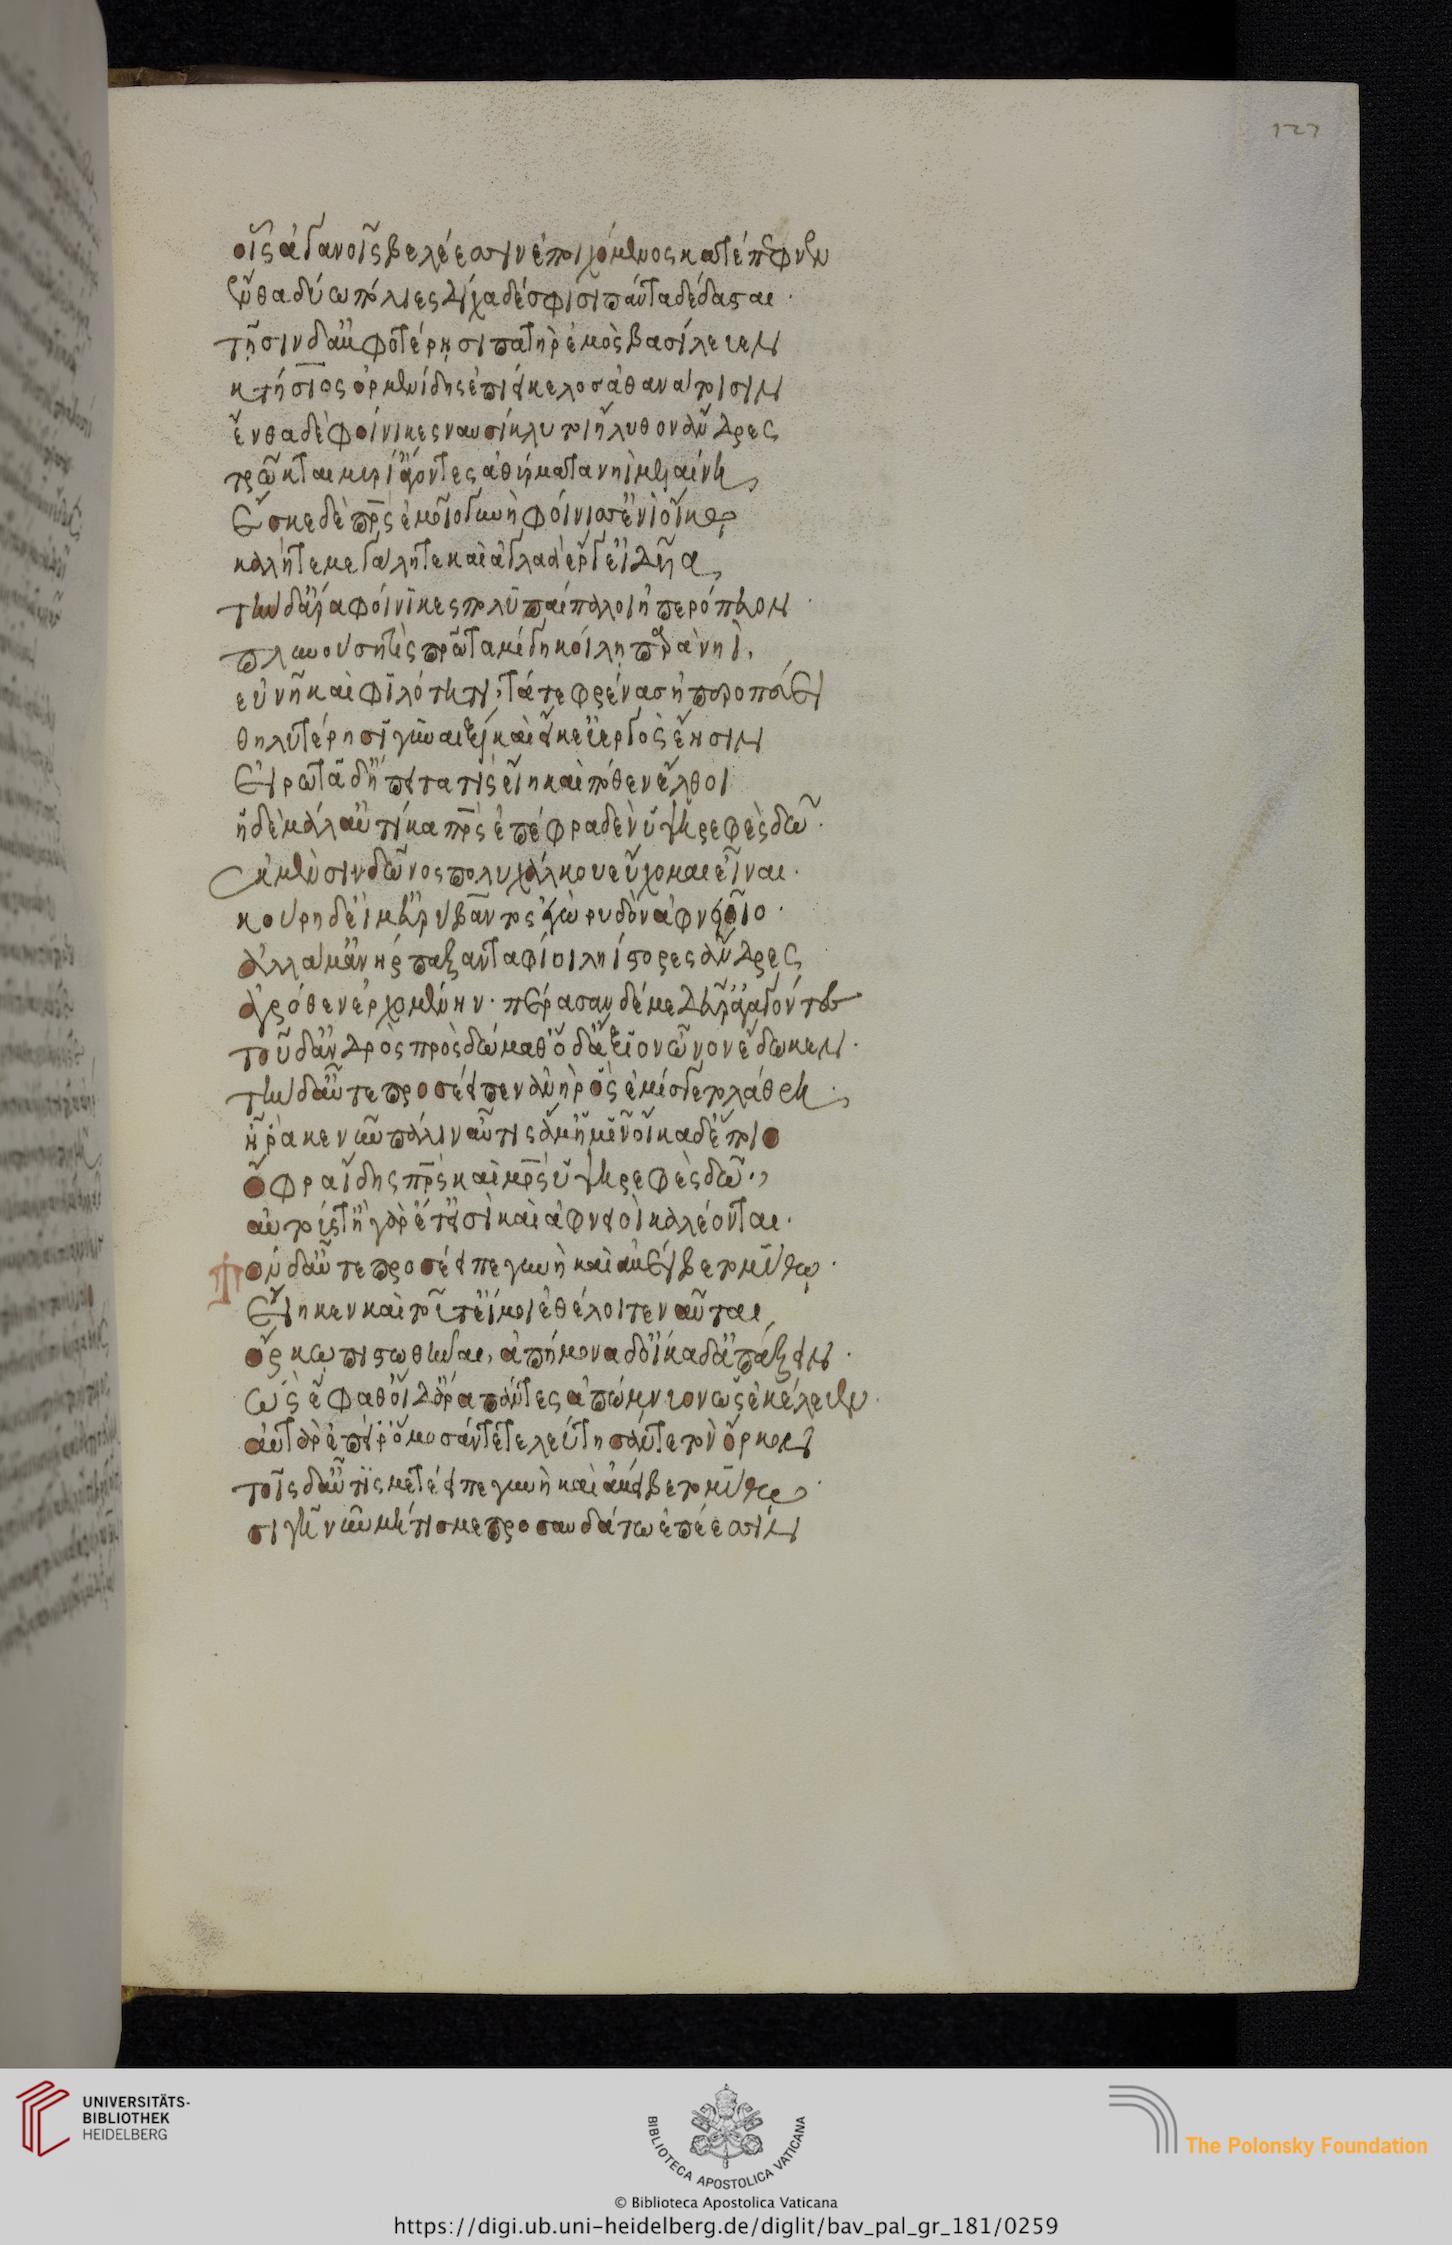 οἷς ἀγανοῖς βελέεσσιν ἐποιχόμενος κατέπεφνεν
ἔνθα δύω πόλιες δίχα δέ σφισι πάντα δέδασται·
τῆσιν δ' ἀμφοτέρησι πατὴρ ἐμὸς βασίλευεν
κτήσιος ὀρμενίδης ἐπιείκελος ἀθανάτοισιν
ἔνθα δὲ φοίνικες ναυσίκλυτοι ἤλυθον ἄνδρες
τρῶκται μυρί' ἄγοντες ἀθύρματα νηῒ μελαίνη,
ἔσκε δὲ πρς ἐμοῖο γυνὴ φοίνισσ' ἐνὶ οἴκω
καλήτε μεγάλητε καὶ ἀγλαὰ ἔργ' εἰδυῖα,
τὴν δ' ἄρα φοίνικες πολυπαίπαλοι ἠπερόπευον·
πλυνούση τὶς πρῶτα μίγη κοίλη παρὰ νηῒ,
εὐνῆ καὶ φιλότητι, τά τε φρένας ἠπεροπεύει
θηλυτέρησι γυναιξὶ καὶ ἥ κ' εὐεργὸς ἔησιν
εἰρώτα δὴ ἔπειτα τίς εἴη καὶ πόθεν ἔλθοι
ἡ δὲ μάλ' αὐτίκα πρς ἐπέφραδεν ὑψερεφὲς δῶ·
ἐκ μὲν σινδῶνος πολυχάλκου εὔχομαι εἶναι·
κούρη δ' εἴμ' ἀρύβαντος ἐγὼ ρυδὸν ἀφνειοῖο·
ἀλλά μ' ἀνήρπαξαν τάφιοι ληίστορες ἄνδρες
ἀγρόθεν ἐρχομένην· πέρασαν δέ με δεῦρ' ἀγαγόντες
τοῦδ' ἀνδρὸς πρὸς δώμαθ' ὁ δ' ἄξιον ὦνον ἔδωκεν·
τὴν δ' αὖτε προσέειπεν ἀνὴρ ὃς ἐμίσγετο λάθρη·
ἦ ῥά κε νῦν πάλιν αὖτις ἅμ' ἡμῖν οἴκαδ' ἕποιο
ὄφρα ἴδης πρς καὶ μρς ὑψερεφὲς δῶ·,
αὐτούς τ' ἦ γὰρ ἔτ' εἰσὶ καὶ ἀφνειοὶ καλέονται·
Τὸν δ' αὖτε προσέειπε γυνὴ καὶ ἀμείβετο μύθω·
εἴη κεν καὶ τοῦτ' εἴ μοι ἐθέλοιτε ναῦται,
ὅρκω πιστωθῆναι, ἀπήμονα δ' οἴκαδ' ἀπάξειν·
ὣς ἔφαθ' οἱ δ' ἄρα πάντες ἀπώμνυον ὡς ἐκέλευεν·
αὐτὰρ ἐπεί ῥ' ὄμοσάν τε τελεύτησάν τε τὸν ὅρκον
τοῖς δ' αὖτις μετέειπε γυνὴ καὶ ἀμείβετο μύθω·
σιγῆ νῦν μή τίς με προσαυδάτω ἐπέεσσιν
UNIVERSITÄTS-
BIBLIOTHEK
HEIDELBERG
BIBLIOTECA APOSTOLICA VATICANA
The Polonsky Foundation
© Biblioteca Apostolica Vaticana
https://digi.ub.uni-heidelberg.de/diglit/bav_pal_gr_181/0259